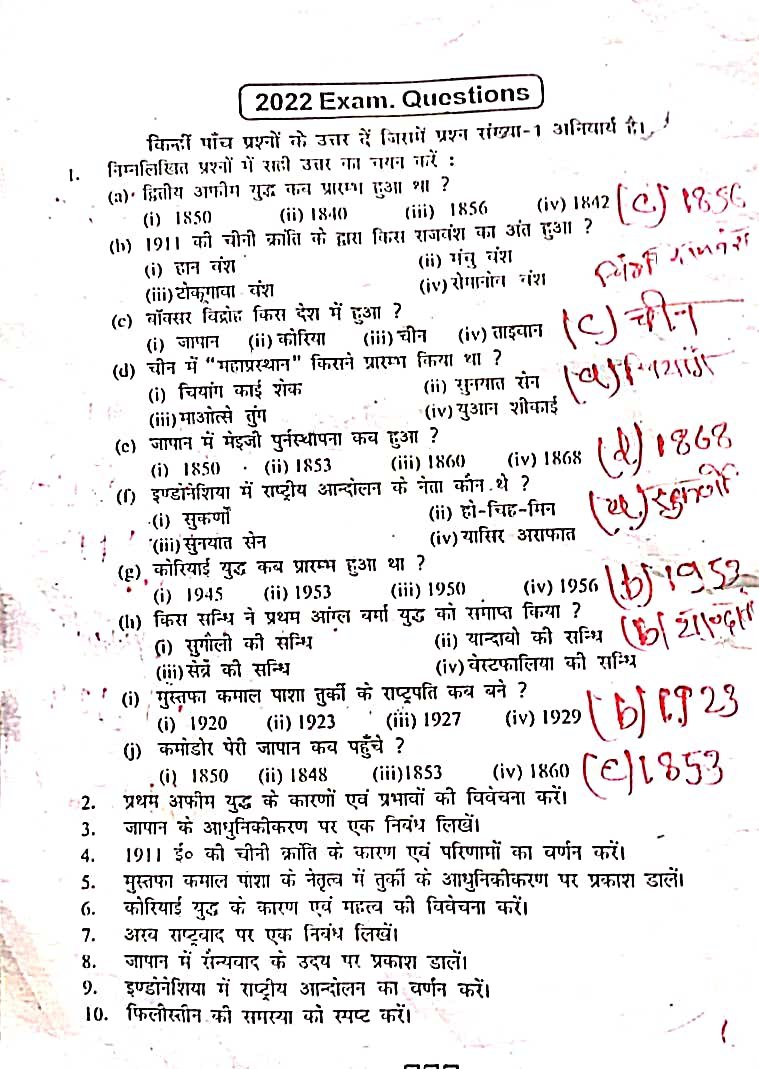 2022 Exam. Questions
किन्हीं पाँच प्रश्नों के उत्तर दें जिसमें प्रश्न संख्या-1 अनिवार्य है।
1. निम्नलिखित प्रश्नों में सही उत्तर का चयन करें :
(a) द्वितीय अफीम युद्ध कब प्रारम्भ हुआ था ?
(i) 1850 (ii) 1840 (iii) 1856 (iv) 1842 (c) 1856
(b) 1911 की चीनी क्रांति के द्वारा किस राजवंश का अंत हुआ ?
(i) हान वंश (ii) मंचु वंश
(iii) टोकूगावा वंश (iv) रोमानोव वंश
(c) बॉक्सर विद्रोह किस देश में हुआ ?
(i) जापान (ii) कोरिया (iii) चीन (iv) ताइवान (c) चीन
(d) चीन में “महाप्रस्थान” किसने प्रारम्भ किया था ?
(i) चियांग काई शेक (ii) सुनयात सेन (a)
(iii) माओत्से तुंग (iv) युआन शीकाई
(e) जापान में मेइजी पुर्नस्थापना कब हुआ ?
(i) 1850 (ii) 1853 (iii) 1860 (iv) 1868 (d) 1868
(f) इण्डोनेशिया में राष्ट्रीय आन्दोलन के नेता कौन थे ?
(i) सुकर्णो (ii) हो-चिह-मिन (a) सुकर्णो
(iii) सुंनयात सेन (iv) यासिर अराफात
(g) कोरियाई युद्ध कब प्रारम्भ हुआ था ?
(i) 1945 (ii) 1953 (iii) 1950 (iv) 1956 (b) 1953
(h) किस सन्धि ने प्रथम आंग्ल बर्मा युद्ध को समाप्त किया ?
(i) सुगौली की सन्धि (ii) यान्दाबो की सन्धि (b)
(iii) सेव्रे की सन्धि (iv) वेस्टफालिया की सन्धि
(i) मुस्तफा कमाल पाशा तुर्की के राष्ट्रपति कब बने ?
(i) 1920 (ii) 1923 (iii) 1927 (iv) 1929 (b) 1923
(j) कमोडोर पेरी जापान कब पहुँचे ?
(i) 1850 (ii) 1848 (iii) 1853 (iv) 1860 (c) 1853
2. प्रथम अफीम युद्ध के कारणों एवं प्रभावों की विवेचना करें।
3. जापान के आधुनिकीकरण पर एक निबंध लिखें।
4. 1911 ई० की चीनी क्रांति के कारण एवं परिणामों का वर्णन करें।
5. मुस्तफा कमाल पाशा के नेतृत्व में तुर्की के आधुनिकीकरण पर प्रकाश डालें।
6. कोरियाई युद्ध के कारण एवं महत्व की विवेचना करें।
7. अरब राष्ट्रवाद पर एक निबंध लिखें।
8. जापान में सैन्यवाद के उदय पर प्रकाश डालें।
9. इण्डोनेशिया में राष्ट्रीय आन्दोलन का वर्णन करें।
10. फिलीस्तीन की समस्या को स्पष्ट करें।